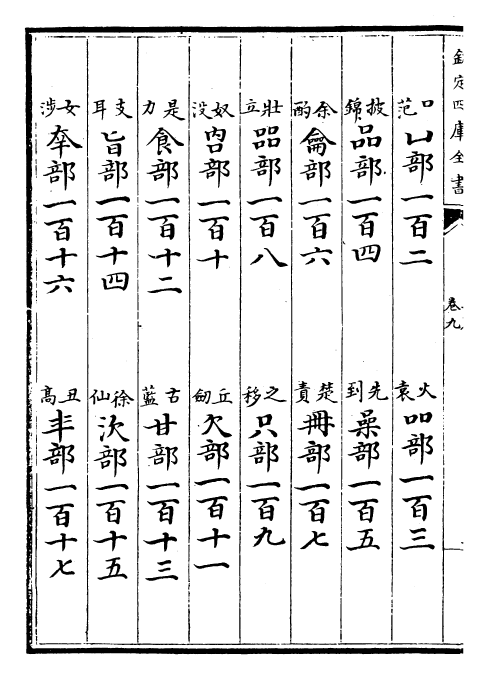 欽定四庫全書
卷九
口范凵部一百二　火袁吅部一百三
披錦品部一百四　先到喿部一百五
余酌龠部一百六　楚責冊部一百七
壯立㗊部一百八　之移只部一百九
奴没㕯部一百十　丘劒欠部一百十一
是力食部一百十二　古藍甘部一百十三
支耳旨部一百十四　徐仙㳄部一百十五
女涉㚔部一百十六　丑高部一百十七